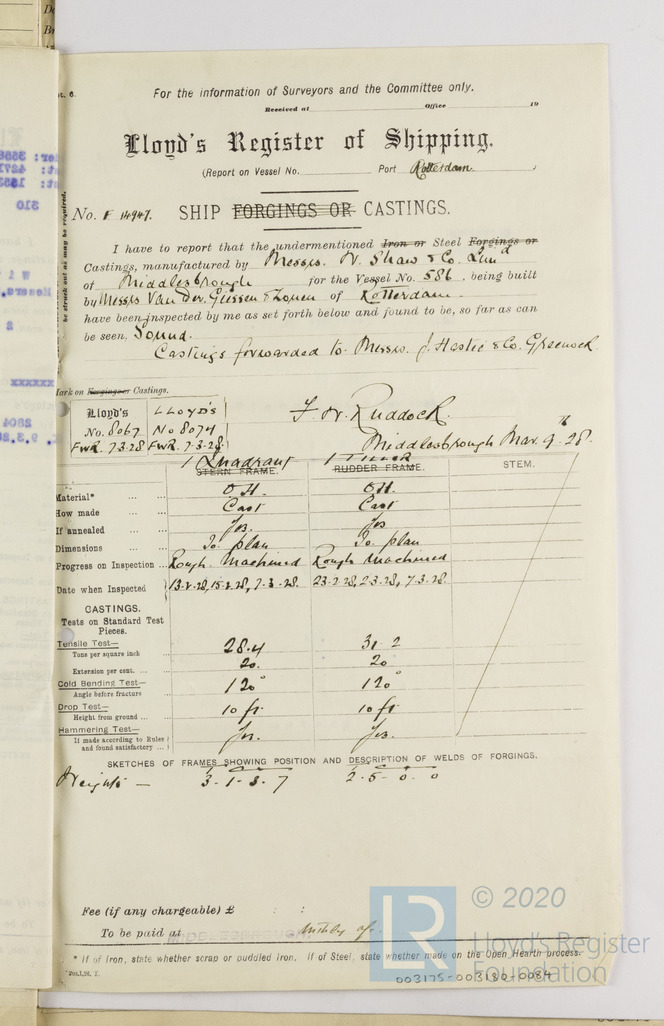 For the information of Surveyors and the Committee only.
Received at Office 19
Lloyd's Register of Shipping.
(Report on Vessel No. Port Rotterdam
No. F 14947. SHIP FORGINGS OR CASTINGS.
I have to report that the undermentioned Iron or Steel Forgings or
Castings, manufactured by Messrs. W. Shaw & Co. Lim'd
of Middlesbrough for the Vessel No. 586, being built
by Messrs Van der Giessen & Zonen of Rotterdam.
have been inspected by me as set forth below and found to be, so far as can
be seen, Sound.
Castings forwarded to Messrs. J. Hastie & Co. Greenock.
Mark on Forgings or Castings.
Lloyd's LLOYD'S
No. 8067 No 8074
FWR. 7-3-28 FWR. 7-3-28
F. W. Ruddock.
Middlesbrough Mar. 9th 28.
1 Quadrant 1 Tiller
STERN FRAME. RUDDER FRAME. STEM.
Material* ... ... OH. OH.
How made ... ... Cast Cast
If annealed ... ... Yes. Yes
Dimensions ... ... To plan To plan
Progress on Inspection ... Rough Machined Rough Machined
Date when Inspected 13-2-28, 15-2-28, 7-3-28. 23-2-28, 2-3-28, 7-3-28
CASTINGS.
Tests on Standard Test
Pieces.
Tensile Test—
Tons per square inch 28.4 31.2
Extension per cent. ... 20. 20
Cold Bending Test—
Angle before fracture 120° 120°
Drop Test—
Height from ground ... 10 ft. 10 ft
Hammering Test—
If made according to Rules
and found satisfactory ... Yes. Yes.
SKETCHES OF FRAMES SHOWING POSITION AND DESCRIPTION OF WELDS OF FORGINGS.
Weights — 3-1-3-7 2-5-0-0
Fee (if any chargeable) £ : :
To be paid at MIDDLESBROUGH Monthly a/c.
* If of Iron, state whether scrap or puddled iron. If of Steel, state whether made on the Open Hearth process.
003175-003180-0084
LR © 2020
Lloyd's Register
Foundation